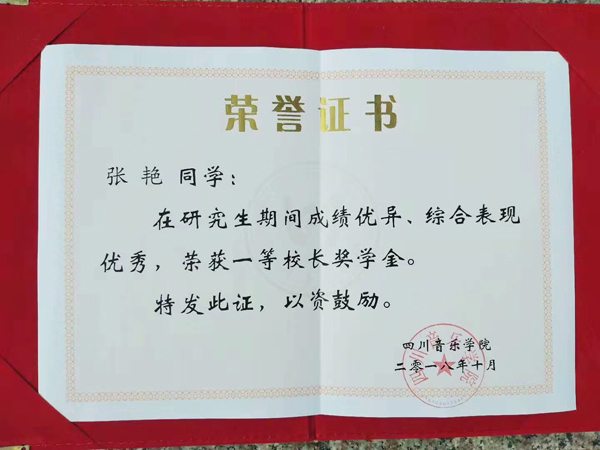 荣誉证书
张艳 同学：
在研究生期间成绩优异、综合表现
优秀，荣获一等校长奖学金。
特发此证，以资鼓励。
四川音乐学院
二零一八年十月
四川音乐学院